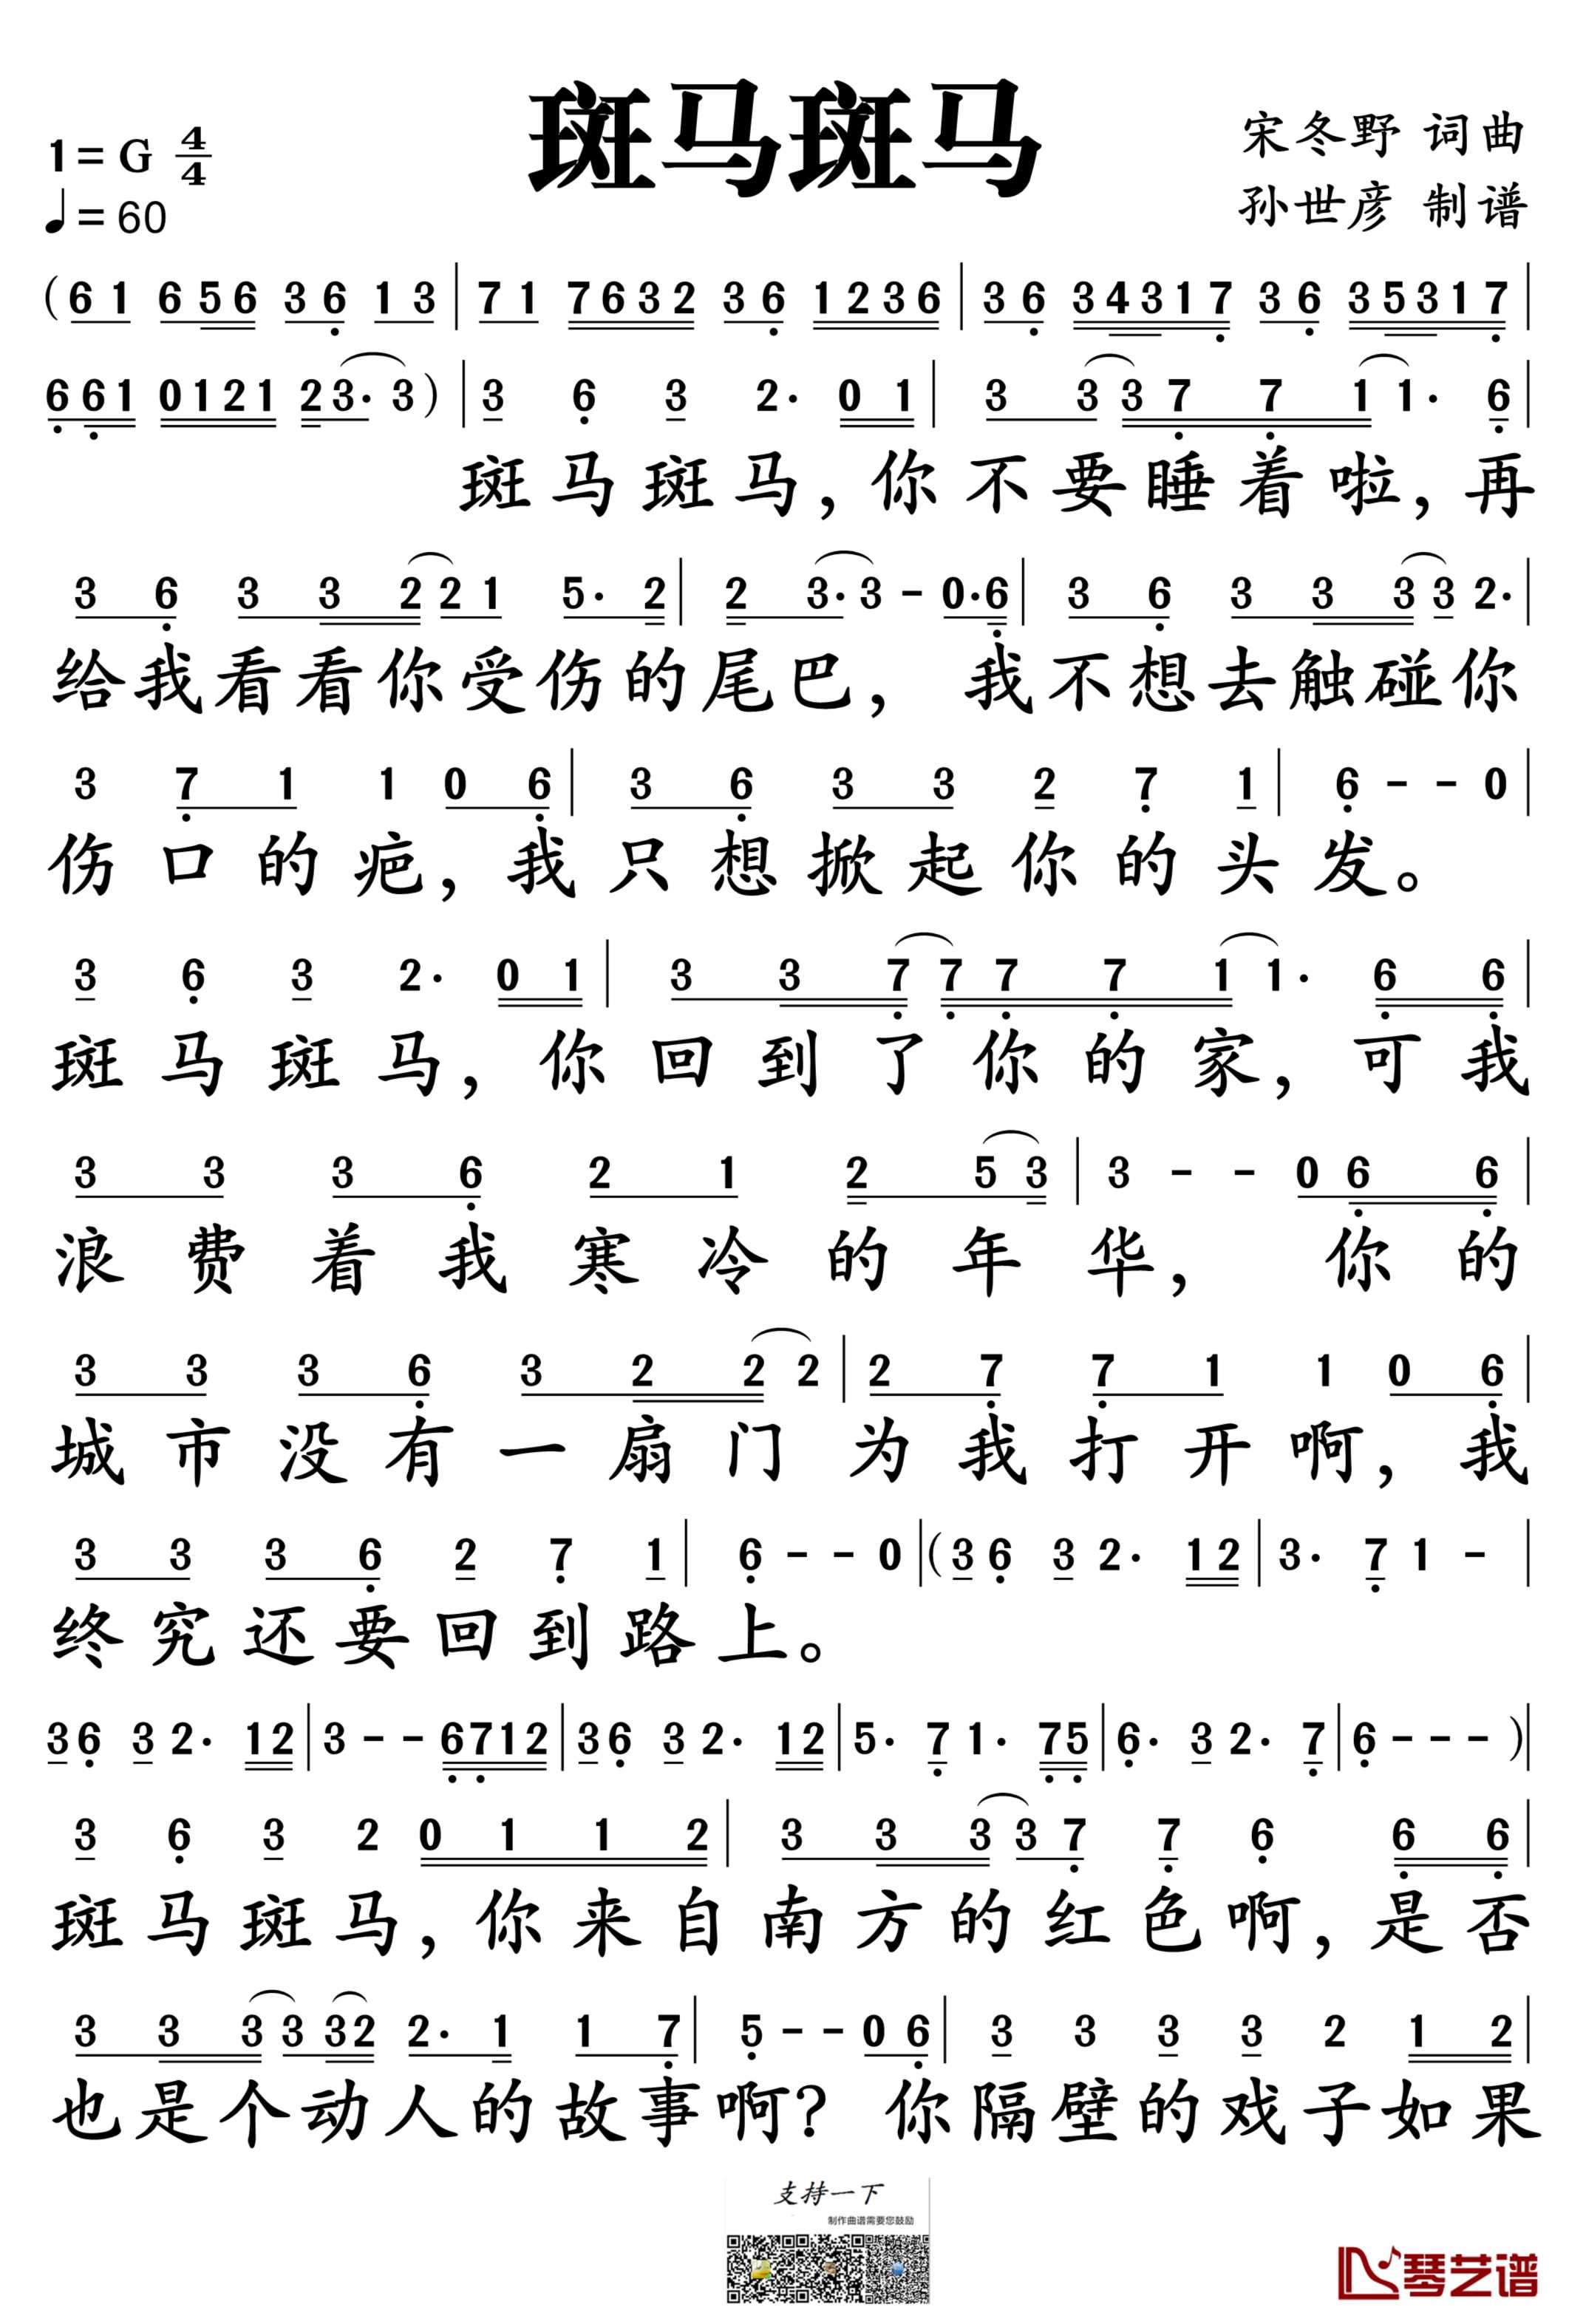 斑马斑马
1=G 4/4
宋冬野 词曲
♩=60
孙世彦 制谱
(6 1 6 5 6 3 6 1 3 | 7 1 7 6 3 2 3 6 1 2 3 6 | 3 6 3 4 3 1 7 3 6 3 5 3 1 7 |
6 6 1 0 1 2 1 2 3· 3) | 3 6 3 2· 0 1 | 3 3 3 7 7 1 1· 6 |
斑马斑马，你不要睡着啦，再
3 6 3 3 2 2 1 5· 2 | 2 3· 3 - 0· 6 | 3 6 3 3 3 3 2· |
给我看看你受伤的尾巴，我不想去触碰你
3 7 1 1 0 6 | 3 6 3 3 2 7 1 | 6 - - 0 |
伤口的疤，我只想掀起你的头发。
3 6 3 2· 0 1 | 3 3 7 7 7 7 1 1· 6 6 |
斑马斑马，你回到了你的家，可我
3 3 3 6 2 1 2 5 3 | 3 - - 0 6 6 |
浪费着我寒冷的年华，你的
3 3 3 6 3 2 2 2 | 2 7 7 1 1 0 6 |
城市没有一扇门为我打开啊，我
3 3 3 6 2 7 1 | 6 - - 0 | (3 6 3 2· 1 2 | 3· 7 1 - |
终究还要回到路上。
3 6 3 2· 1 2 | 3 - - 6 7 1 2 | 3 6 3 2· 1 2 | 5· 7 1· 7 5 | 6· 3 2· 7 | 6 - - - ) |
3 6 3 2 0 1 1 2 | 3 3 3 3 7 7 6 6 6 |
斑马斑马，你来自南方的红色啊，是否
3 3 3 3 3 2 2· 1 1 7 | 5 - - 0 6 | 3 3 3 3 2 1 2 |
也是个动人的故事啊？你隔壁的戏子如果
支持一下
制作曲谱需要您鼓励
琴艺谱